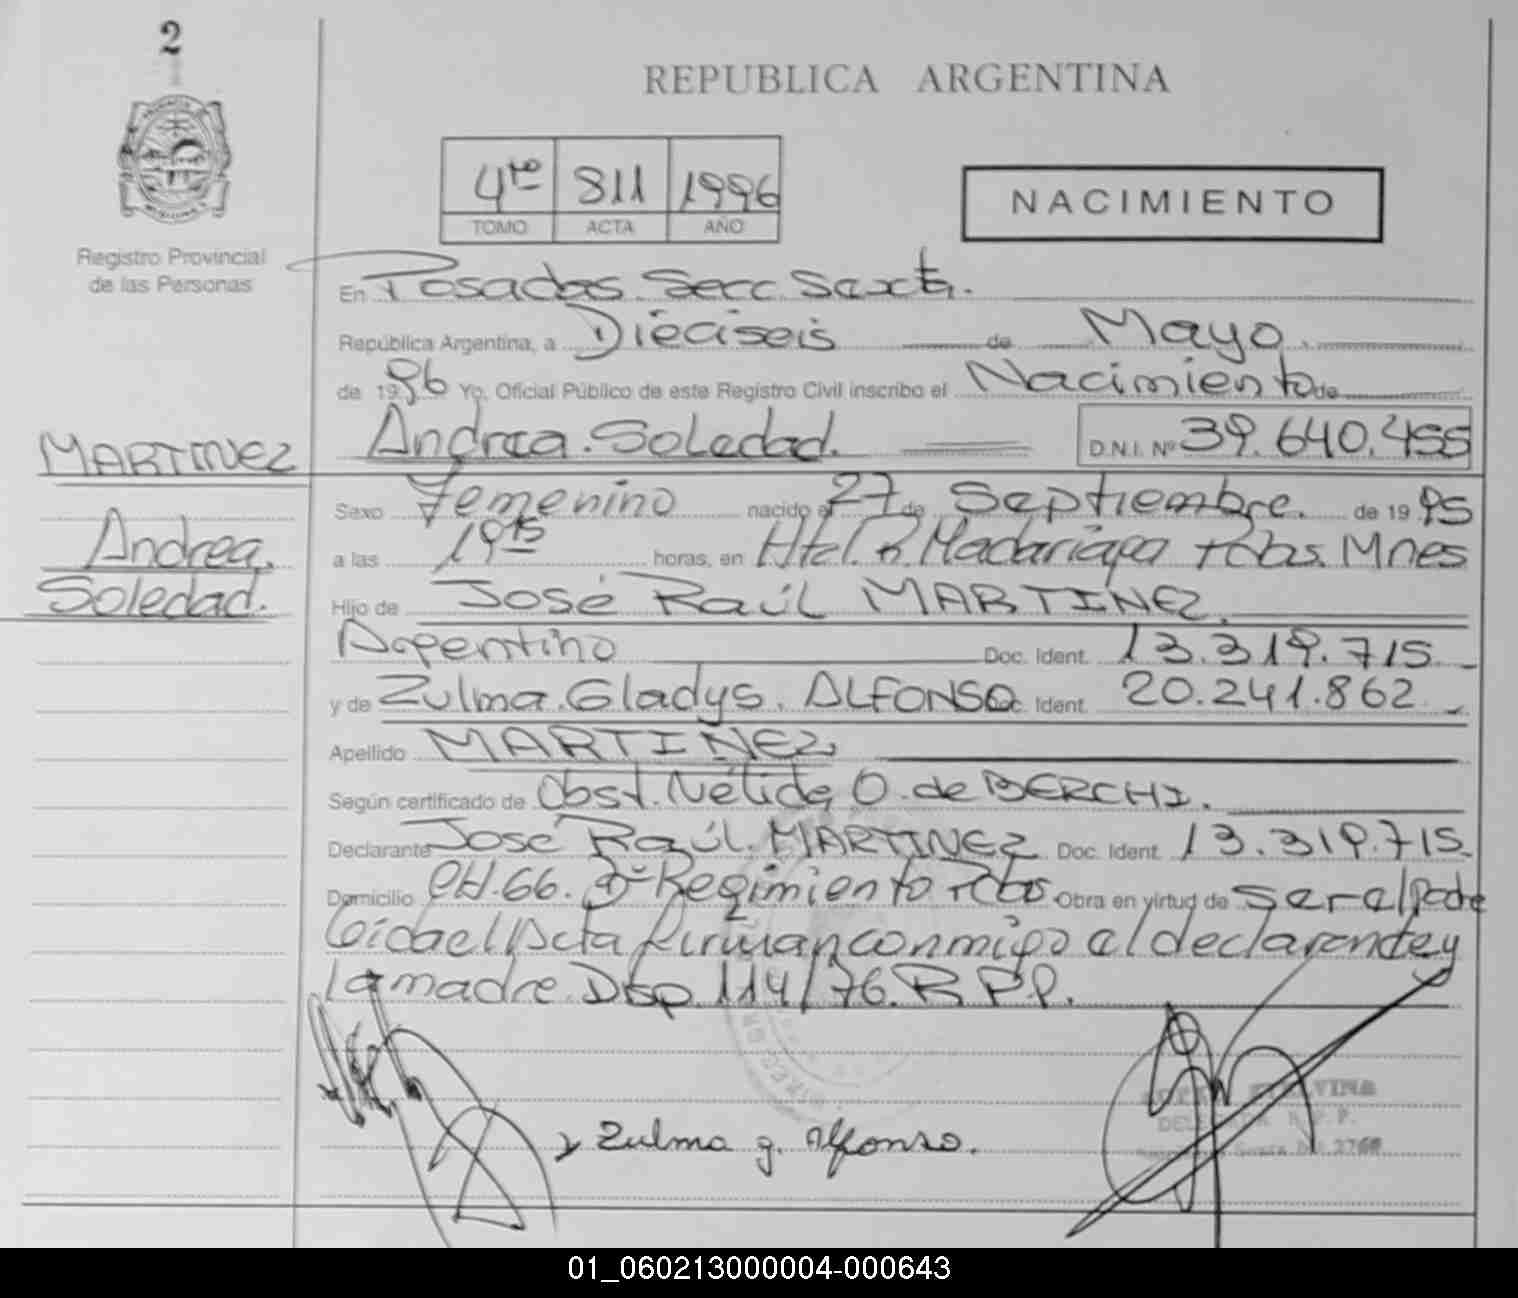 2
REPUBLICA ARGENTINA
4to 811 1996
TOMO ACTA AÑO
NACIMIENTO
Registro Provincial
de las Personas
En Posadas. Secc. Sexta.
República Argentina, a Dieciseis de Mayo.
de 1996 Yo, Oficial Público de este Registro Civil inscribo el Nacimiento de
MARTINEZ
Andrea. Soledad. D.N.I. Nº 39.640.455
Andrea.
Soledad.
Sexo Femenino nacido el 27 de Septiembre. de 1995
a las 19 15 horas, en Htal. R. Madariaga Pdas. Mnes
Hijo de José Raúl MARTINEZ.
Argentino Doc. Ident. 13.319.715
y de Zulma. Gladys. ALFONSO Doc. Ident. 20.241.862
Apellido MARTINEZ
Según certificado de Obst. Nélida O. de BERCHI.
Declarante José Raúl. MARTINEZ Doc. Ident. 13.319.715
Domicilio CH.66. Regimiento Pdas. Obra en virtud de ser el Padre
Leída el Acta firman conmigo el declarante y
la madre. Disp. 114/76. R.P.P.
Zulma g. Alfonso.
DELEGADA R.P.P.
01_060213000004-000643